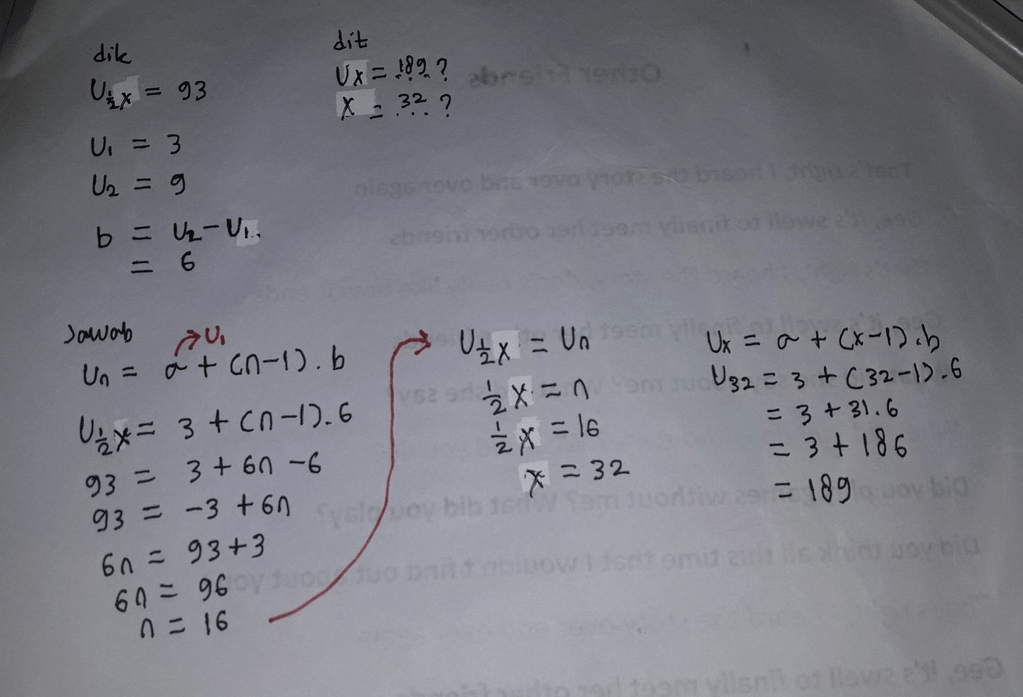 dik
U½x = 93
U₁ = 3
U₂ = 9
b = U₂ - U₁
= 6
dit
Ux = 189 ?
x = 32 ?
Jawab
→ U₁
Un = a + (n-1).b
U½x = 3 + (n-1).6
93 = 3 + 6n - 6
93 = -3 + 6n
6n = 93 + 3
6n = 96
n = 16
U½x = Un
½x = n
½x = 16
x = 32
Ux = a + (x-1).b
U32 = 3 + (32-1).6
= 3 + 31.6
= 3 + 186
= 189